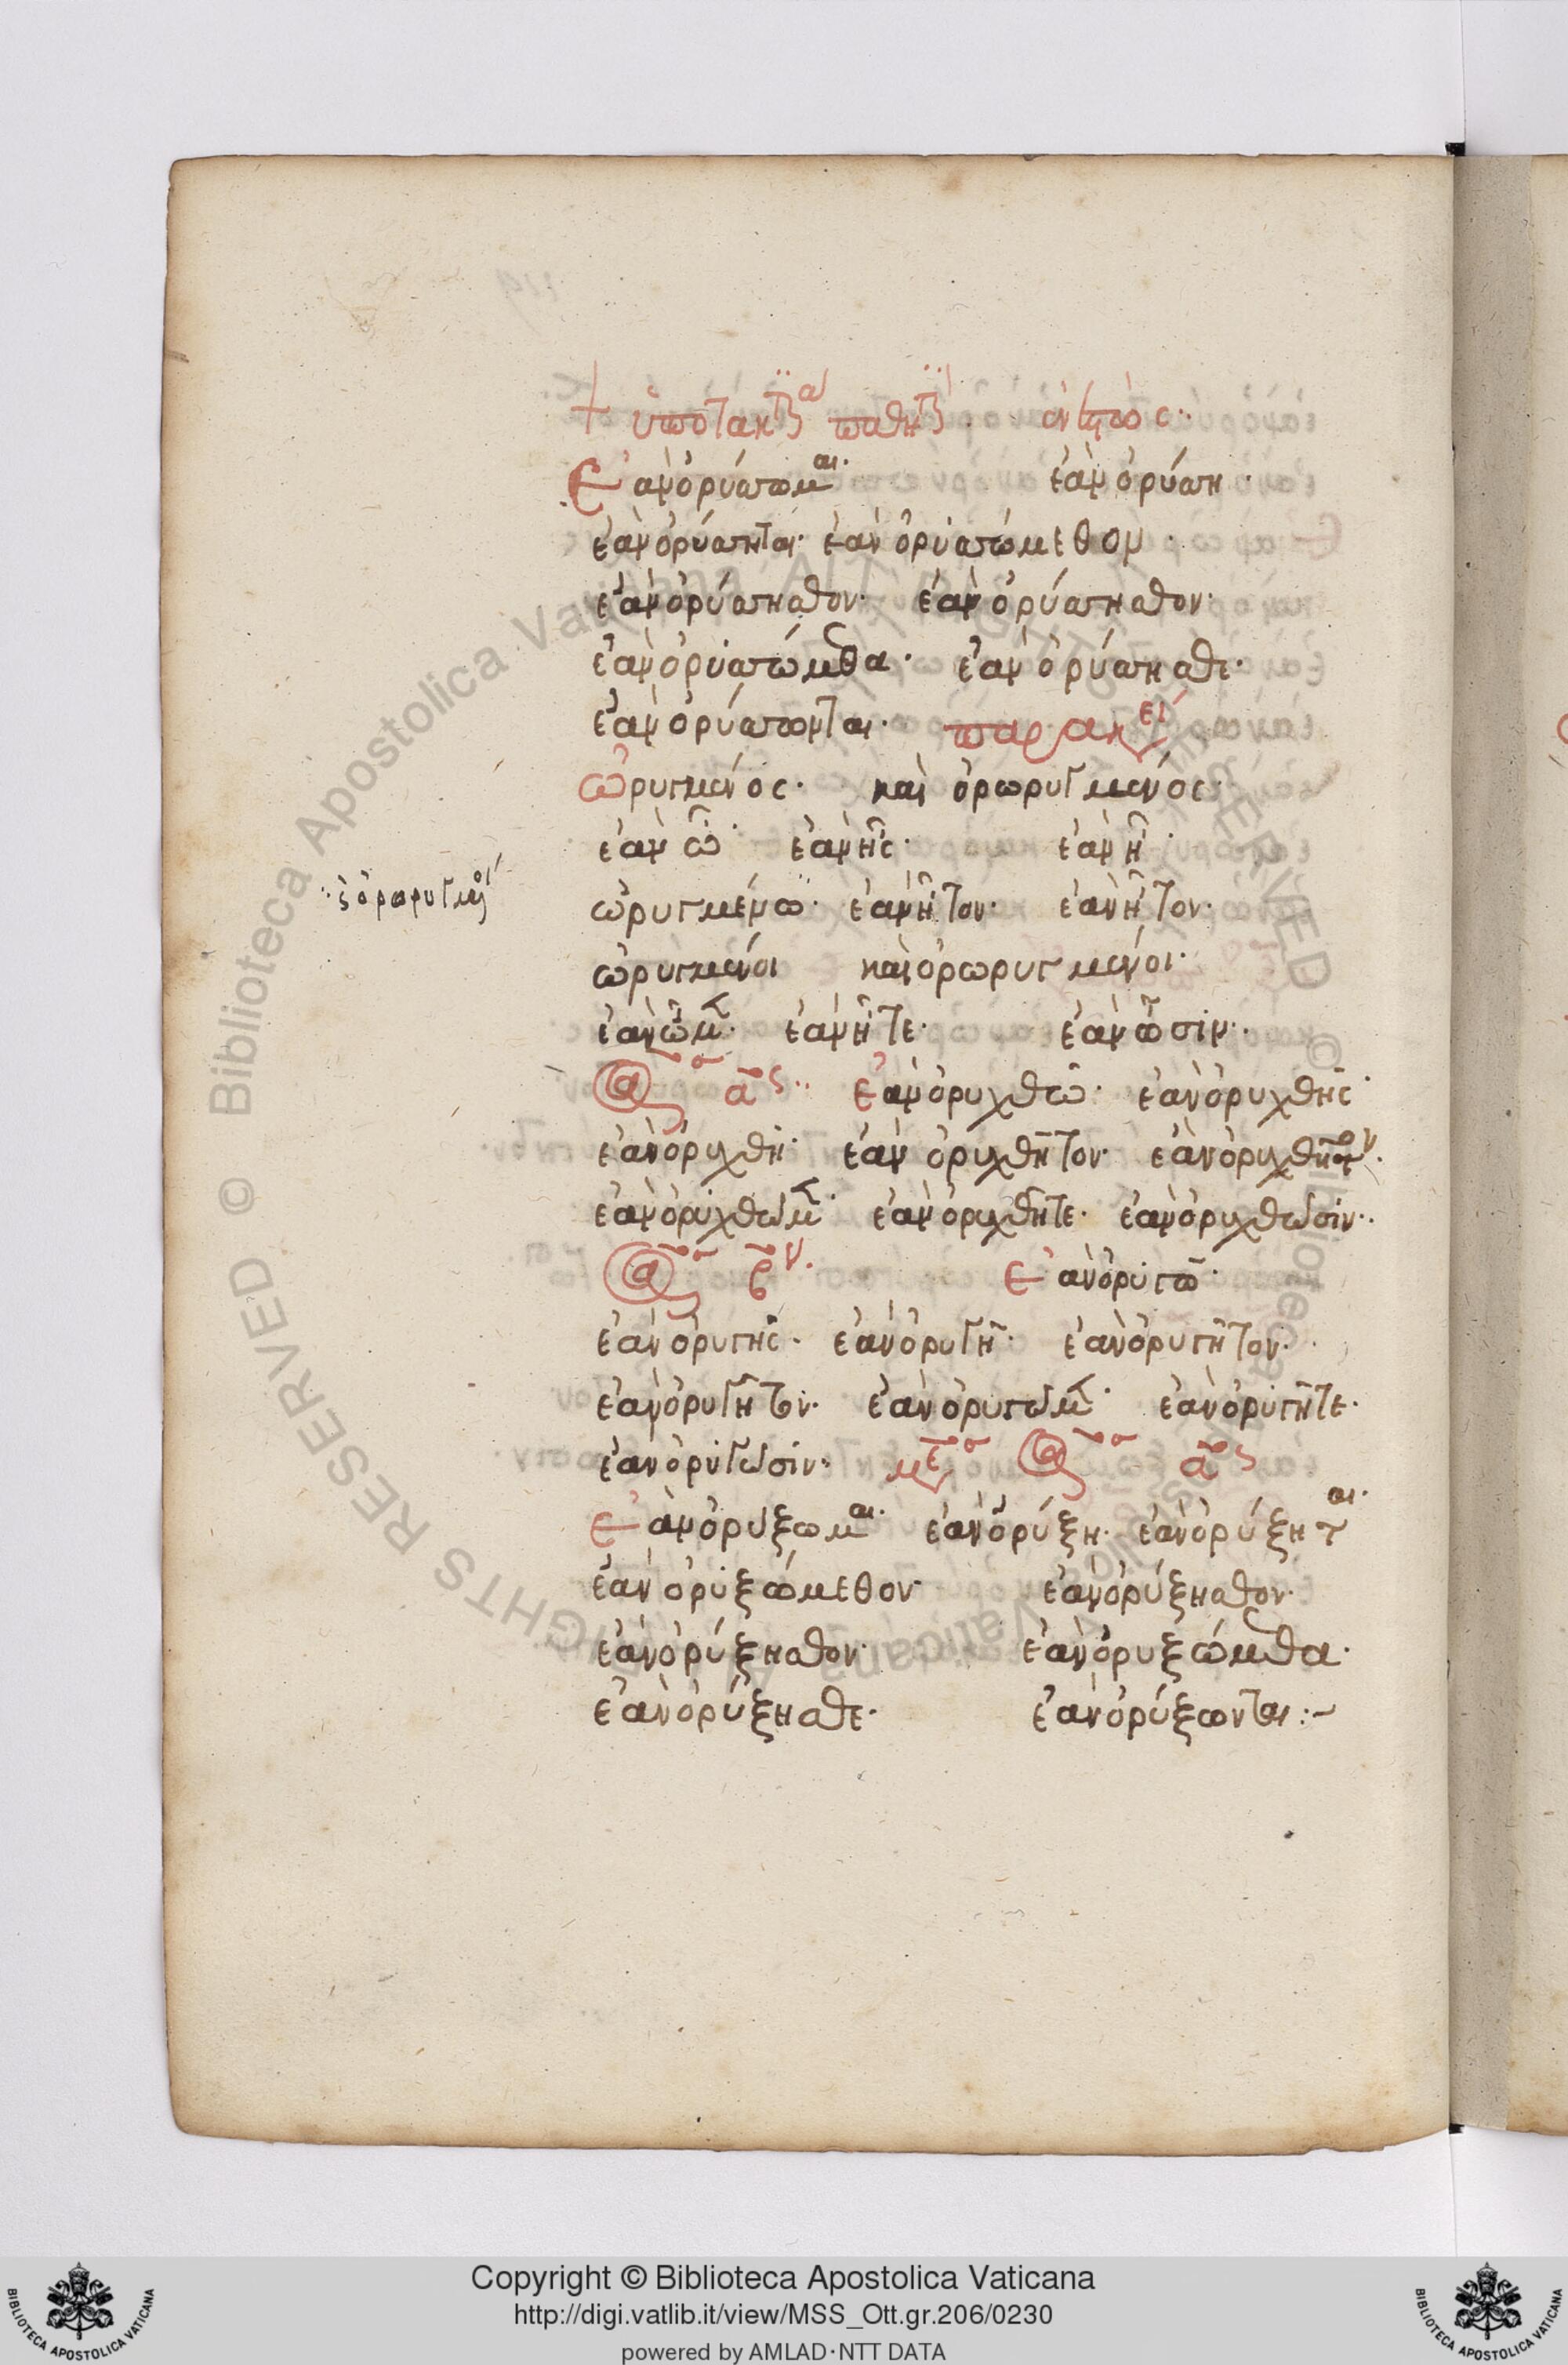 + ὑποτακτικὰ παθητικά. ἐνεστώς.
Ἐὰν ὀρύσσωμαι. ἐὰν ὀρύσση.
ἐὰν ὀρύσσηται. ἐὰν ὀρυσσώμεθον.
ἐὰν ὀρύσσησθον. ἐὰν ὀρύσσησθον.
ἐὰν ὀρυσσώμεθα. ἐὰν ὀρύσσησθε.
ἐὰν ὀρύσσωνται. παρακεί
ὠρυγμένος. καὶ ὀρωρυγμένος.
ἐὰν ὦ. ἐὰν ἦς. ἐὰν ἦ.
ὠρυγμένω. ἐὰν ἦτον. ἐὰν ἦτον.
ὠρυγμένοι καὶ ὀρωρυγμένοι.
ἐὰν ὦμεν. ἐὰν ἦτε. ἐὰν ὦσιν.
ἀόριστος αος. ἐὰν ὀρυχθῶ. ἐὰν ὀρυχθῆς.
ἐὰν ὀρυχθῆ. ἐὰν ὀρυχθῆτον. ἐὰν ὀρυχθῆτον.
ἐὰν ὀρυχθῶμεν. ἐὰν ὀρυχθῆτε. ἐὰν ὀρυχθῶσιν.
ἀόριστος β. Ἐὰν ὀρυγῶ.
ἐὰν ὀρυγῆς. ἐὰν ὀρυγῆ. ἐὰν ὀρυγῆτον.
ἐὰν ὀρυγῆτον. ἐὰν ὀρυγῶμεν. ἐὰν ὀρυγῆτε.
ἐὰν ὀρυγῶσιν. μέσος ἀόριστος αος
Ἐὰν ὀρύξωμαι. ἐὰν ὀρύξη. ἐὰν ὀρύξηται.
ἐὰν ὀρυξώμεθον ἐὰν ὀρύξησθον.
ἐὰν ὀρύξησθον. ἐὰν ὀρυξώμεθα.
ἐὰν ὀρύξησθε. ἐὰν ὀρύξωνται :~
Copyright © Biblioteca Apostolica Vaticana
http://digi.vatlib.it/view/MSS_Ott.gr.206/0230
powered by AMLAD·NTT DATA